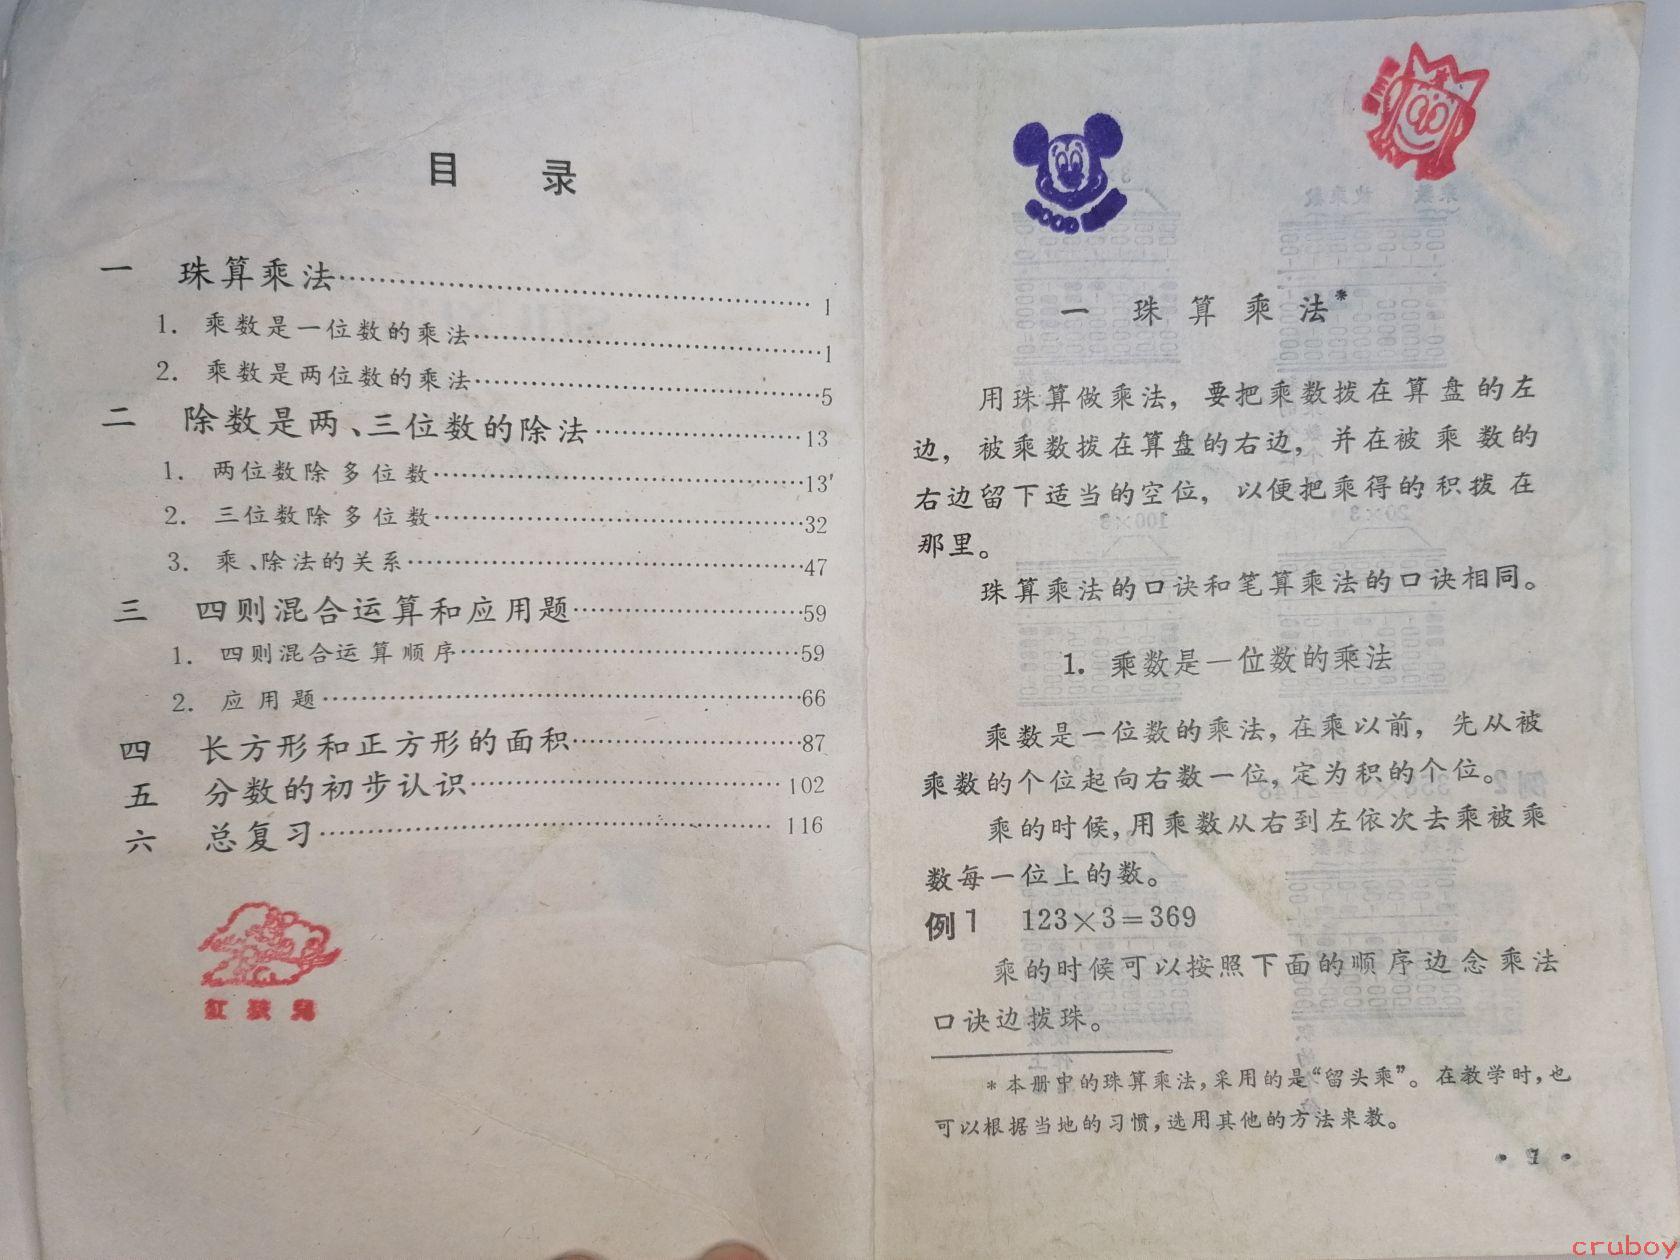 目 录
一 珠算乘法……1
1. 乘数是一位数的乘法……1
2. 乘数是两位数的乘法……5
二 除数是两、三位数的除法……13
1. 两位数除多位数……13
2. 三位数除多位数……32
3. 乘、除法的关系……47
三 四则混合运算和应用题……59
1. 四则混合运算顺序……59
2. 应用题……66
四 长方形和正方形的面积……87
五 分数的初步认识……102
六 总复习……116
红孩儿
一 珠算乘法*
用珠算做乘法，要把乘数拨在算盘的左
边，被乘数拨在算盘的右边，并在被乘数的
右边留下适当的空位，以便把乘得的积拨在
那里。
珠算乘法的口诀和笔算乘法的口诀相同。
1. 乘数是一位数的乘法
乘数是一位数的乘法，在乘以前，先从被
乘数的个位起向右数一位，定为积的个位。
乘的时候，用乘数从右到左依次去乘被乘
数每一位上的数。
例1 123×3=369
乘的时候可以按照下面的顺序边念乘法
口诀边拨珠。
*本册中的珠算乘法，采用的是“留头乘”。在教学时，也
可以根据当地的习惯，选用其他的方法来教。
• 1 •
cruboy